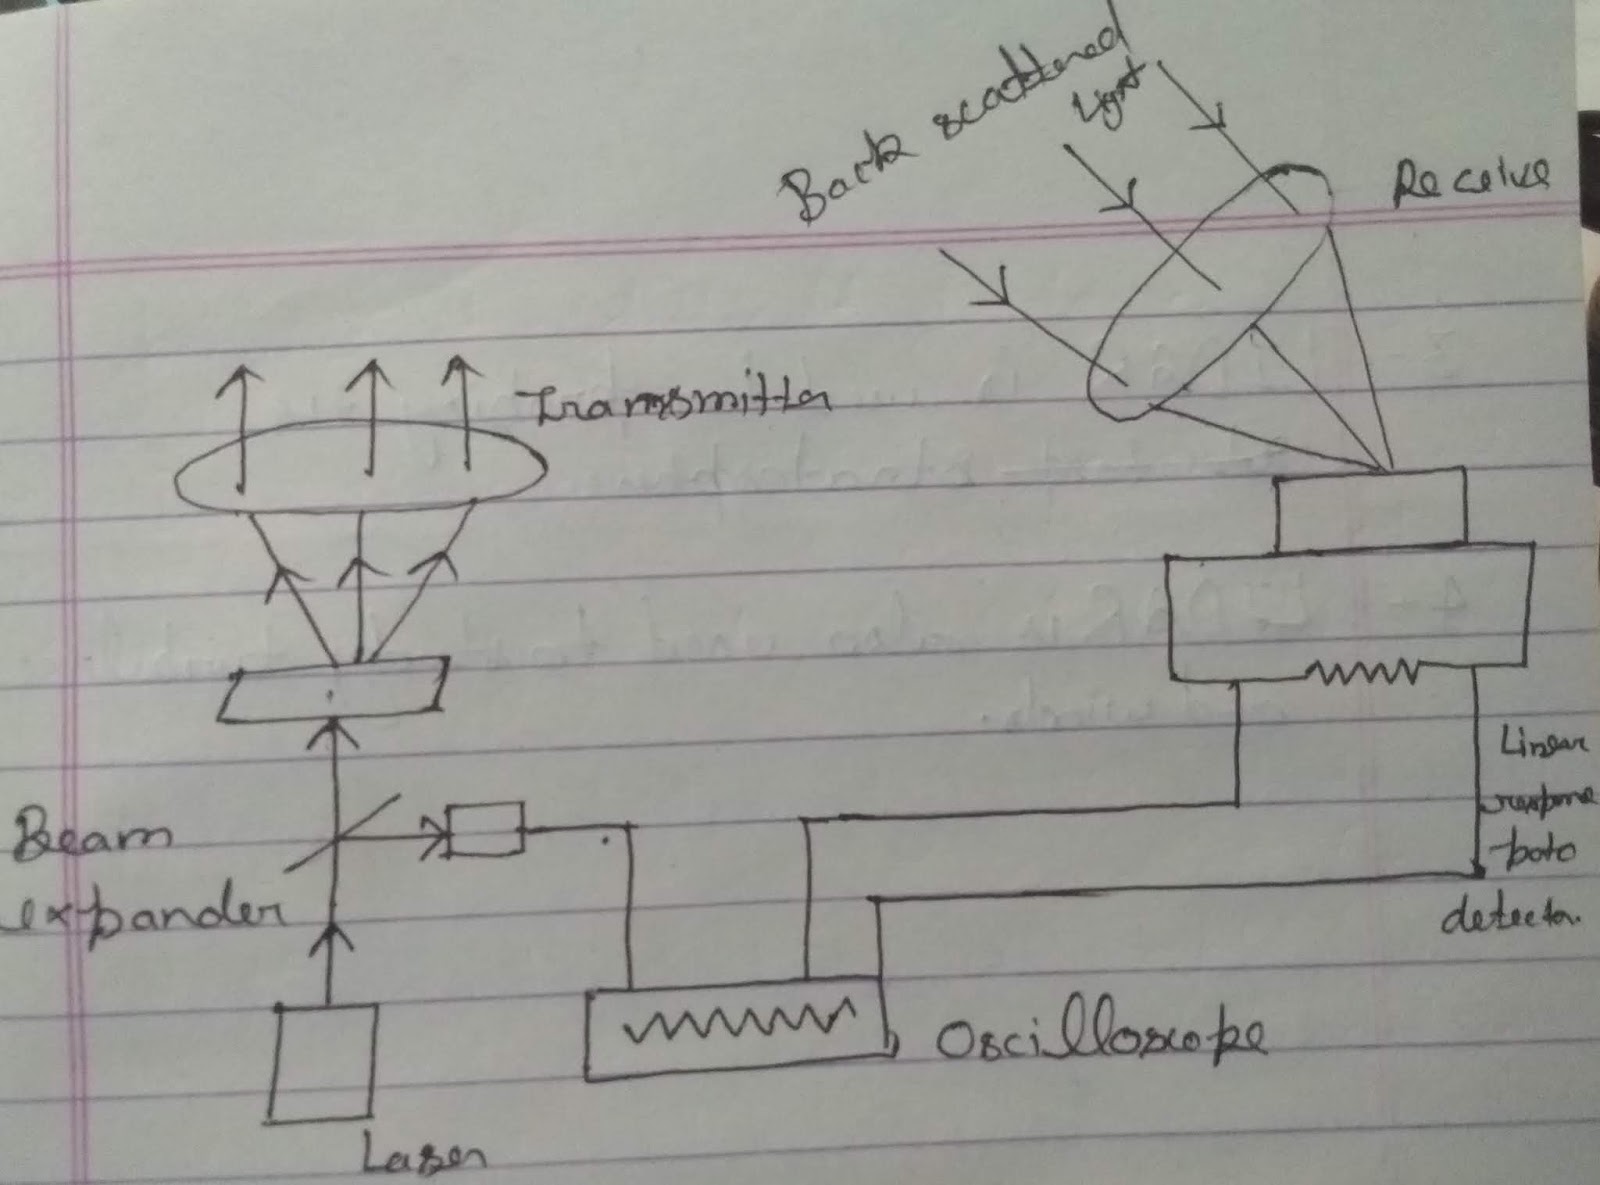 Back scattered
Light
Receive
Transmitter
Linear
response
poto
detector.
Beam
expander
Oscilloscope
Laser